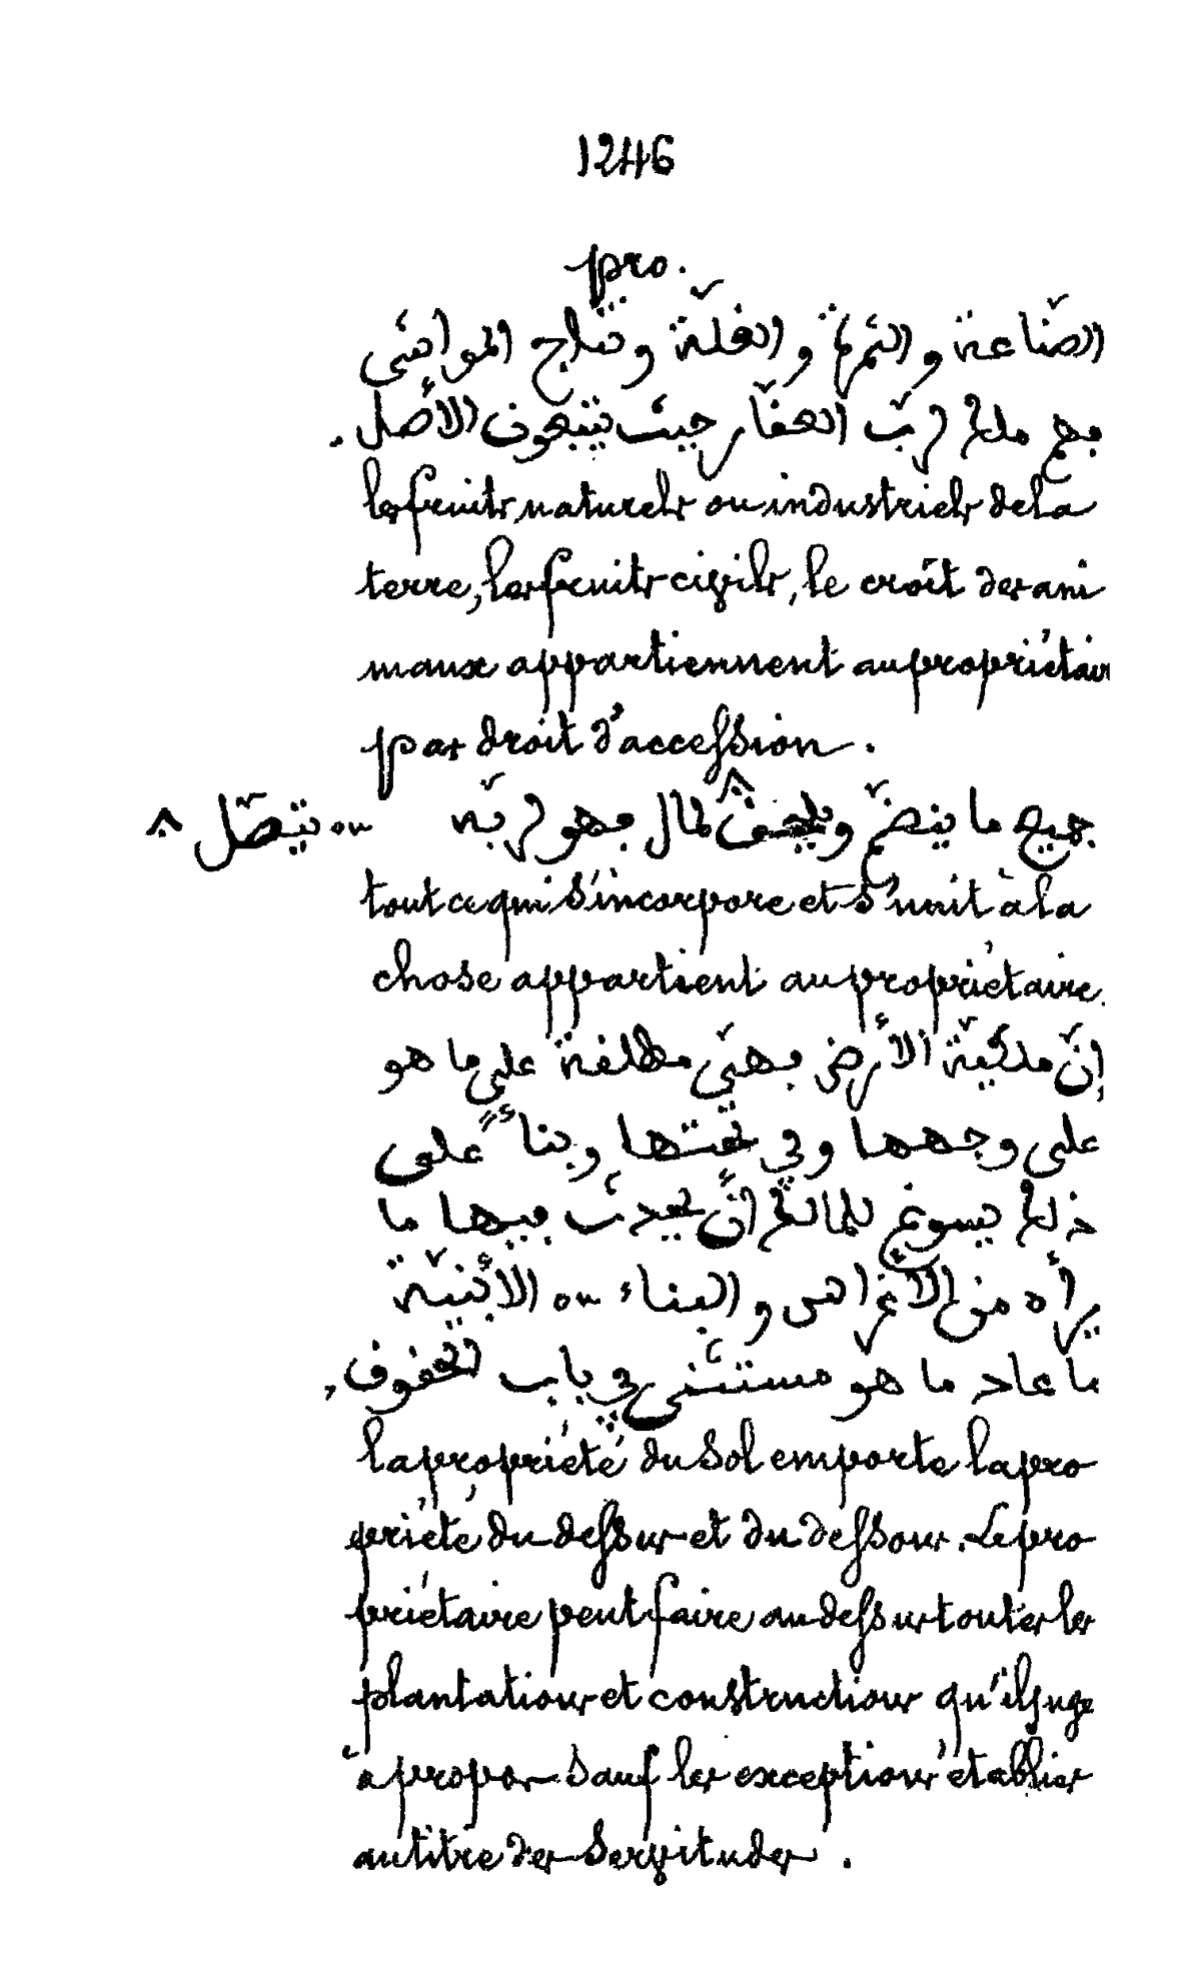 1246
pro.
الصّناعة والثمرة والغلّة ونتاج المواشي
فهي ملك لربّ العقّار حيث يتبعون الأصل.
les fruits naturels ou industriels de la
terre, les fruits civils, le croît des ani
maux appartiennent au propriétaire
par droit d'accession.
جميع ما ينضمّ ويلحق لمال فهو لربّه ou يتّصل
tout ce qui s'incorpore et s'unit à la
chose appartient au propriétaire.
إنّ ملكيّة الأرض فهي مطلقة على ما هو
على وجهها وفي تحتها وبناءً على
ذلك يسوغ للمالك أن يحدث فيها ما
يرأه من الأغراس والبناء ou الأبنيّة
ما عاد ما هو مستثنى في باب الحقوق.
la propriété du sol emporte la pro
priété du dessus et du dessous. Le pro
priétaire peut faire au dessus toutes les
plantations et constructions qu'il juge
à propos sauf les exceptions établies
au titre des servitudes.